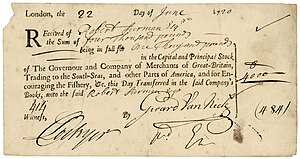 London, the 22 Day of June 1720
Received of Robert Surman Esqr
the Sum of four thousand pounds
being in full for one thousand pounds
in the Capital and Principal Stock
of The Governour and Company of Merchants of Great-Britain,
Trading to the South-Seas, and other Parts of America, and for Encouraging
the Fishery, &c, this Day Transferred in the said Company's
Books, unto the said Robert Surman Esqr
4000
Witness, Gerard Van Neck
(484)